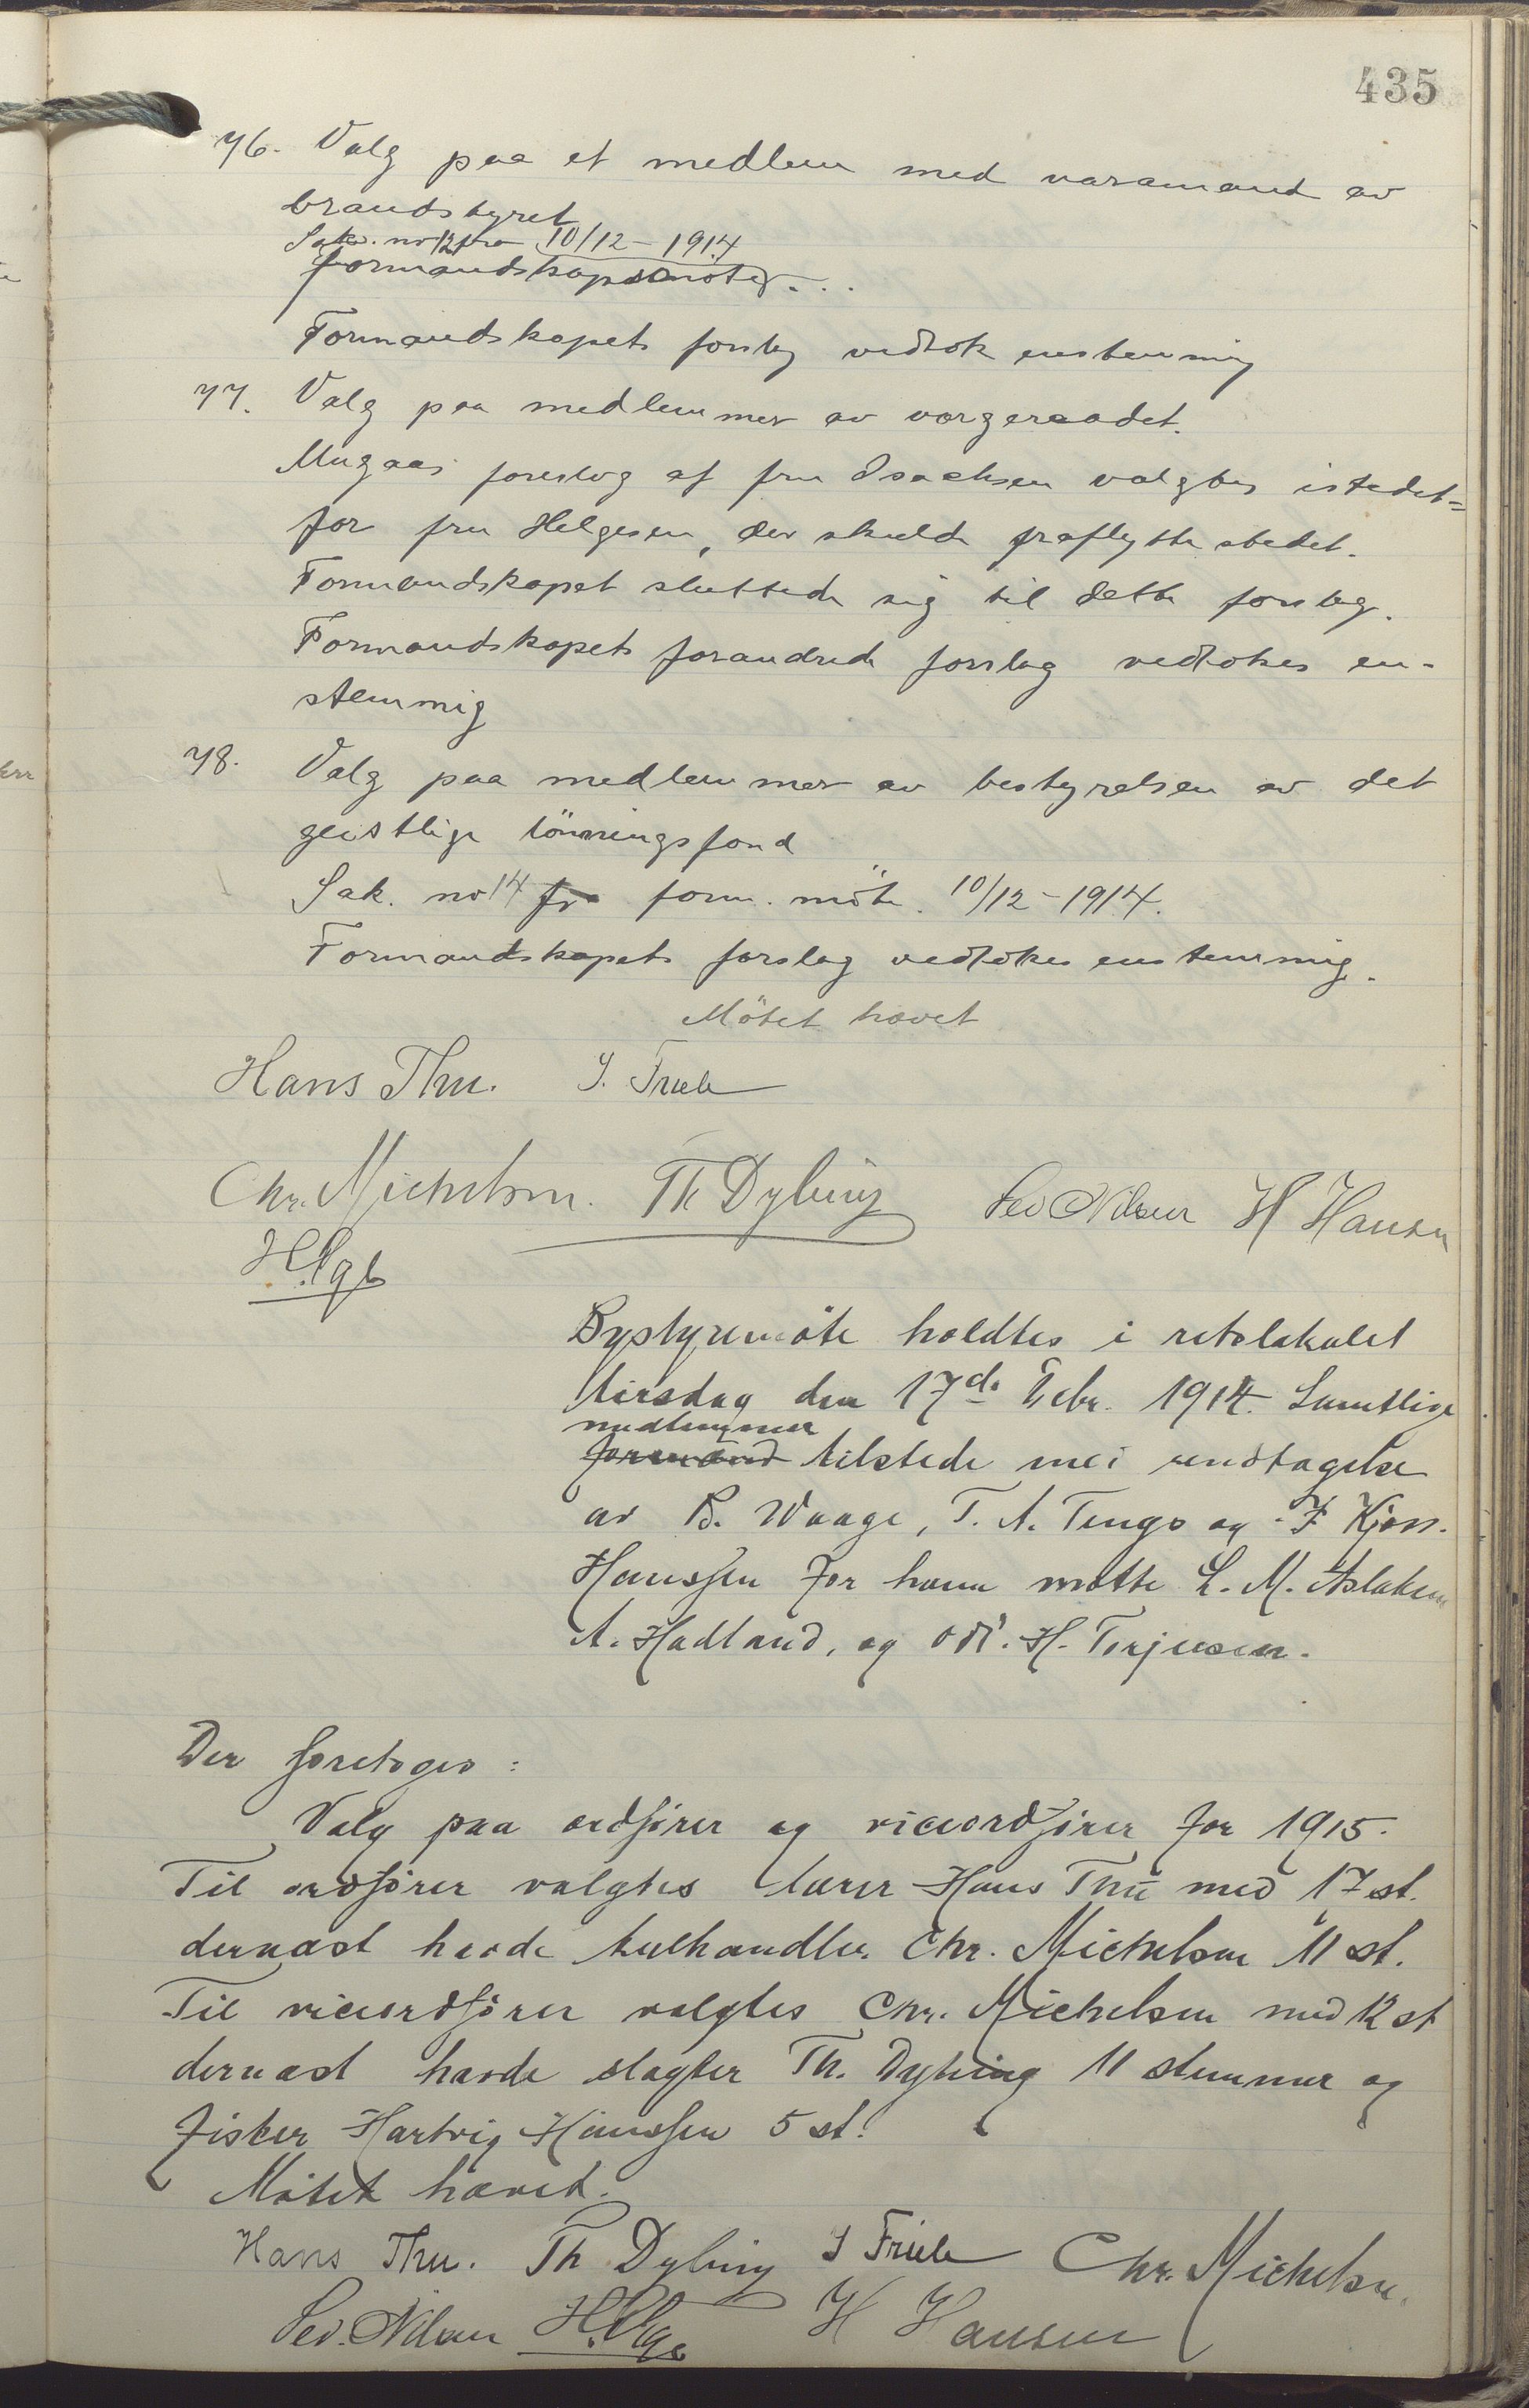 435
76. Valg paa et medlem med varamand av
brandstyret
Sak. no 12 fra 10/12 - 1914
formandskapsmöte
Formandskapets forslag vedtok enstemmig
77. Valg paa medlemmer av vergeraadet.
Mugaas foreslog at fru Isachsen valgtes istedet=
for fru Helgesen, der skulde fraflytte stedet.
Formandskapet sluttede sig til dette forslag.
Formandskapets forandrede forslag vedtokes en-
stemmig
78. Valg paa medlemmer av bestyrelsen av det
geistlige lönningsfond
Sak. no 14 fra form. möte. 10/12 - 1914.
Formandskapets forslag vedtokes enstemmig.
Mötet hævet
Hans Thu. J. Friele
Chr. Michelsen. Th Dybing Sev Nilsen H Hansen
Bystyremöte holdtes i retslokalet
tirsdag den 17de 1914. Samtlige
medlemmer
formænd tilstede med undtagelse
av B. Waage, T. A. Tengs og F Kjøss.
Hanssen for ham møtte L. M. Aslaksen
A. Hadland, og H. Terjesen.
Der foretoges:
Valg paa ordförer og viceordförer for 1915.
Til ordförer valgtes lærer Hans Thu med 17 st.
dernæst havde kulhandler. Chr. Michelsen 11 st.
Til viceordförer valgtes Chr. Michelsen med 12 st
dernæst havde slagter Th. Dybing 11 stemmer og
fisker Hartvig Hanssen 5 st.
Møtet hævet.
Hans Thu. Th Dybing J Friele Chr. Michelsen.
Sev. Nilsen H Hansen